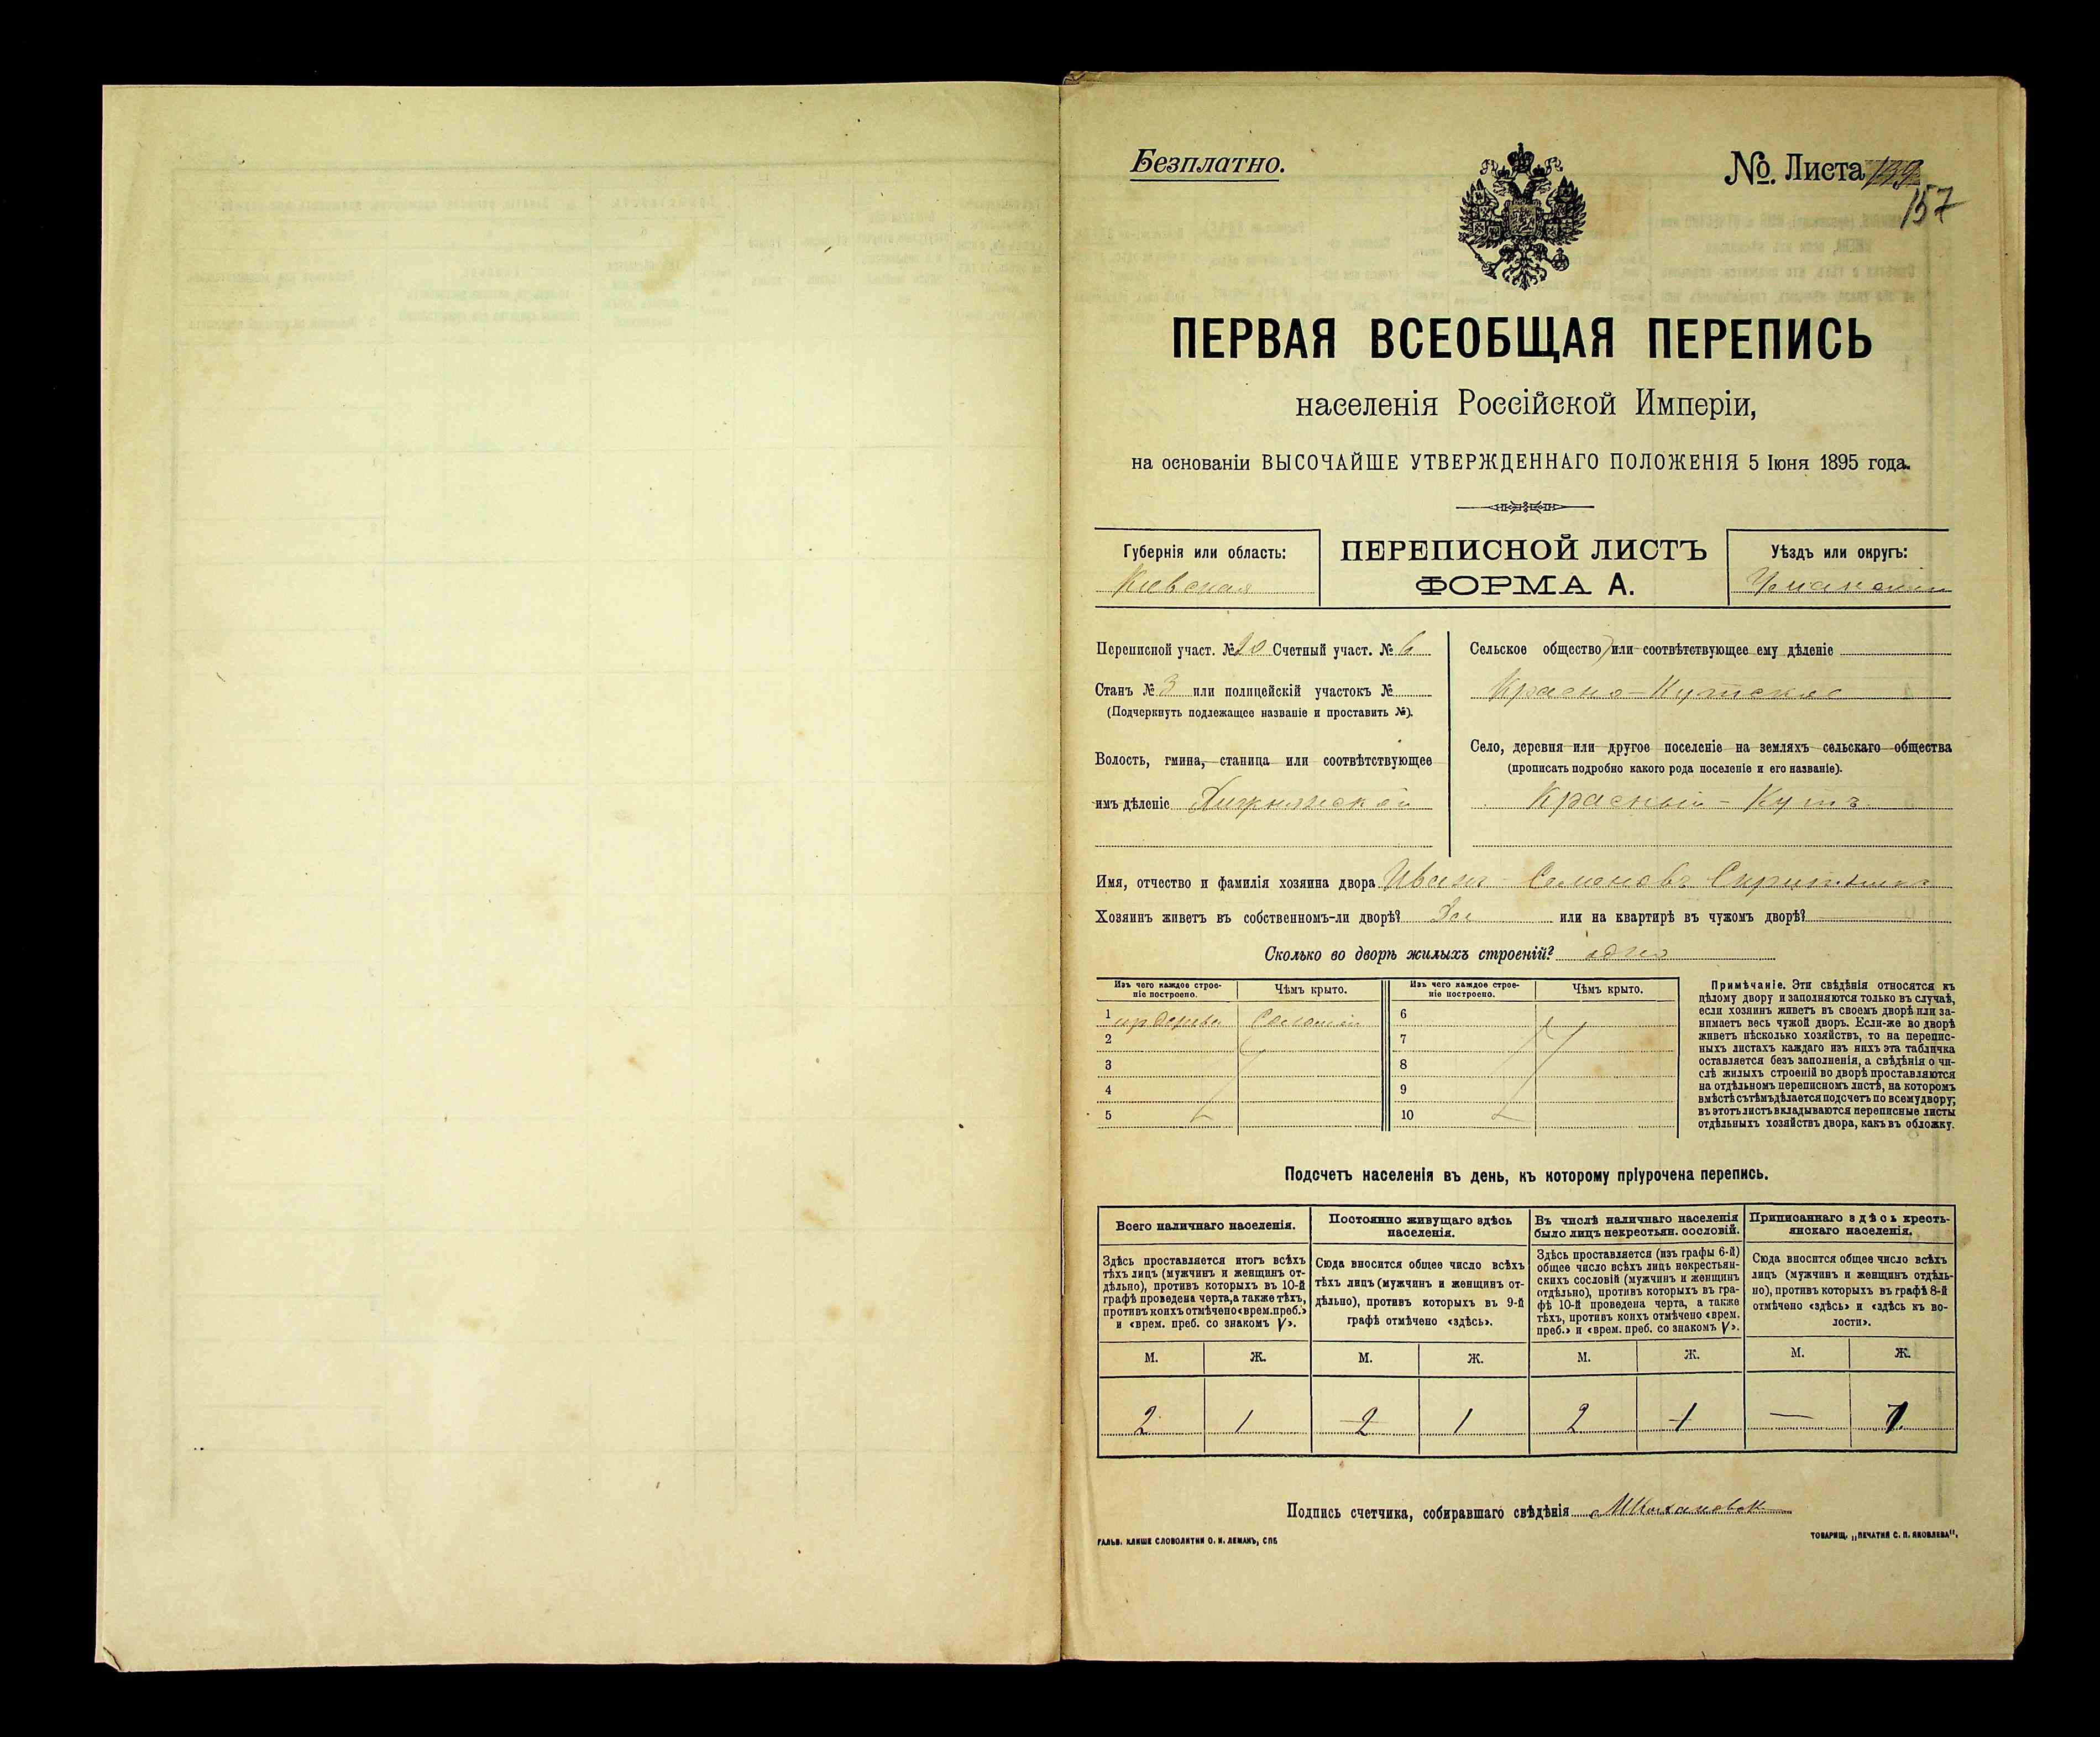 Безплатно.
№ Листа 139
157
ПЕРВАЯ ВСЕОБЩАЯ ПЕРЕПИСЬ
населенія Россійской Имперіи,
на основаніи ВЫСОЧАЙШЕ УТВЕРЖДЕННАГО ПОЛОЖЕНІЯ 5 Іюня 1895 года.
Губернія или область:
Кіевская
ПЕРЕПИСНОЙ ЛИСТЪ
ФОРМА А.
Уѣздъ или округъ:
Уманскій
Переписной участ. № 20 Счетный участ. № 6
Станъ № 3 или полицейскій участокъ №
(Подчеркнуть подлежащее названіе и проставить №).
Волость, гмина, станица или соотвѣтствующее
имъ дѣленіе
Сельское общество или соотвѣтствующее ему дѣленіе
Красно-Кутское
Село, деревня или другое поселеніе на земляхъ сельскаго общества
(прописать подробно какого рода поселеніе и его названіе).
Красный-Кутъ
Имя, отчество и фамилія хозяина двора Иванъ Семеновъ
Хозяинъ живетъ въ собственномъ-ли дворѣ? Да или на квартирѣ въ чужомъ дворѣ?
Сколько во дворѣ жилыхъ строеній? одно
Изъ чего каждое строе-
ніе построено.
Чѣмъ крыто.
Изъ чего каждое строе-
ніе построено.
Чѣмъ крыто.
1 изъ дерева Соломой
2
3
4
5
6
7
8
9
10
Примѣчаніе. Эти свѣдѣнія относятся къ
цѣлому двору и заполняются только въ случаѣ,
если хозяинъ живетъ въ своемъ дворѣ или за-
нимаетъ весь чужой дворъ. Если-же во дворѣ
живетъ нѣсколько хозяйствъ, то на перепис-
ныхъ листахъ каждаго изъ нихъ эта табличка
оставляется безъ заполненія, а свѣдѣнія о чи-
слѣ жилыхъ строеній во дворѣ проставляются
на отдѣльномъ переписномъ листѣ, на которомъ
вмѣстѣ съ тѣмъ дѣлается подсчетъ по всему двору;
въ этотъ листъ вкладываются переписные листы
отдѣльныхъ хозяйствъ двора, какъ въ обложку.
Подсчетъ населенія въ день, къ которому пріурочена перепись.
Всего наличнаго населенія.
Здѣсь проставляется итогъ всѣхъ
тѣхъ лицъ (мужчинъ и женщинъ от-
дѣльно), противъ которыхъ въ 10-й
графѣ проведена черта, а также тѣхъ,
противъ коихъ отмѣчено «врем. преб.»
и «врем. преб. со знакомъ V».
Постоянно живущаго здѣсь
населенія.
Сюда вносится общее число всѣхъ
тѣхъ лицъ (мужчинъ и женщинъ от-
дѣльно), противъ которыхъ въ 9-й
графѣ отмѣчено «здѣсь».
Въ числѣ наличнаго населенія
было лицъ некрестьян. сословій.
Здѣсь проставляется (изъ графы 6-й)
общее число всѣхъ лицъ некрестьян-
скихъ сословій (мужчинъ и женщинъ
отдѣльно), противъ которыхъ въ гра-
фѣ 10-й проведена черта, а также
тѣхъ, противъ коихъ отмѣчено «врем.
преб.» и «врем. преб. со знакомъ V».
Приписаннаго здѣсь кресть-
янскаго населенія.
Сюда вносится общее число всѣхъ
лицъ (мужчинъ и женщинъ отдѣль-
но), противъ которыхъ въ графѣ 8-й
отмѣчено «здѣсь» и «здѣсь къ во-
лости».
М. Ж. М. Ж. М. Ж. М. Ж.
2 1 2 1 2 1 — 1
Подпись счетчика, собиравшаго свѣдѣнія
ГАЛЬВ. КЛИШЕ СЛОВОЛИТНИ О. И. ЛЕМАНЪ, СПБ
ТОВАРИЩ. „ПЕЧАТНЯ С. П. ЯКОВЛЕВА“.